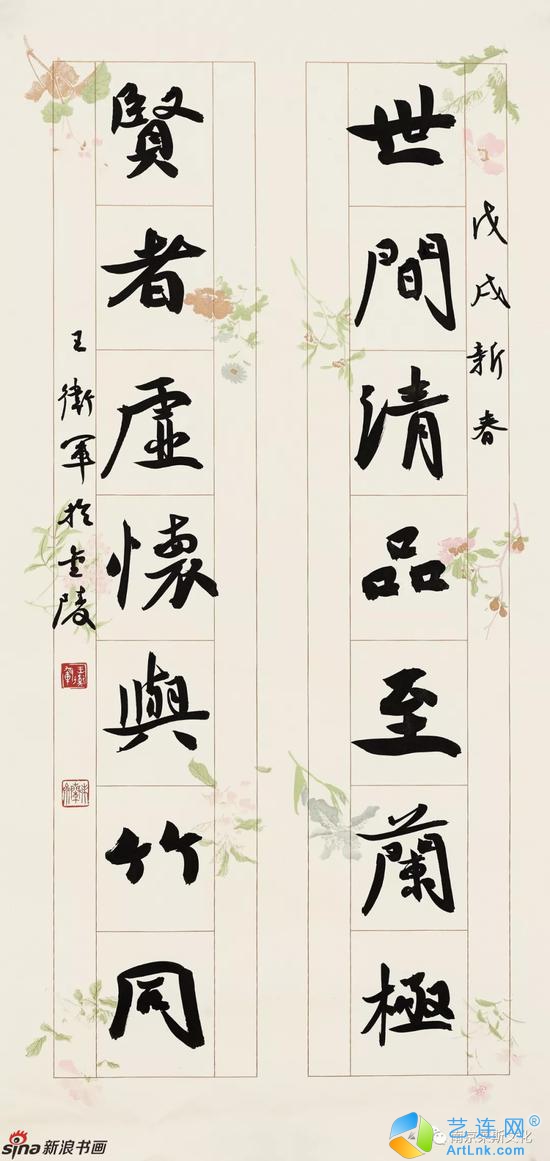 戊戌新春
世間清品至蘭極
賢者虛懷與竹同
王衛軍於金陵
sina新浪书画
南京莱斯文化
艺连网®
ArtLnk.com